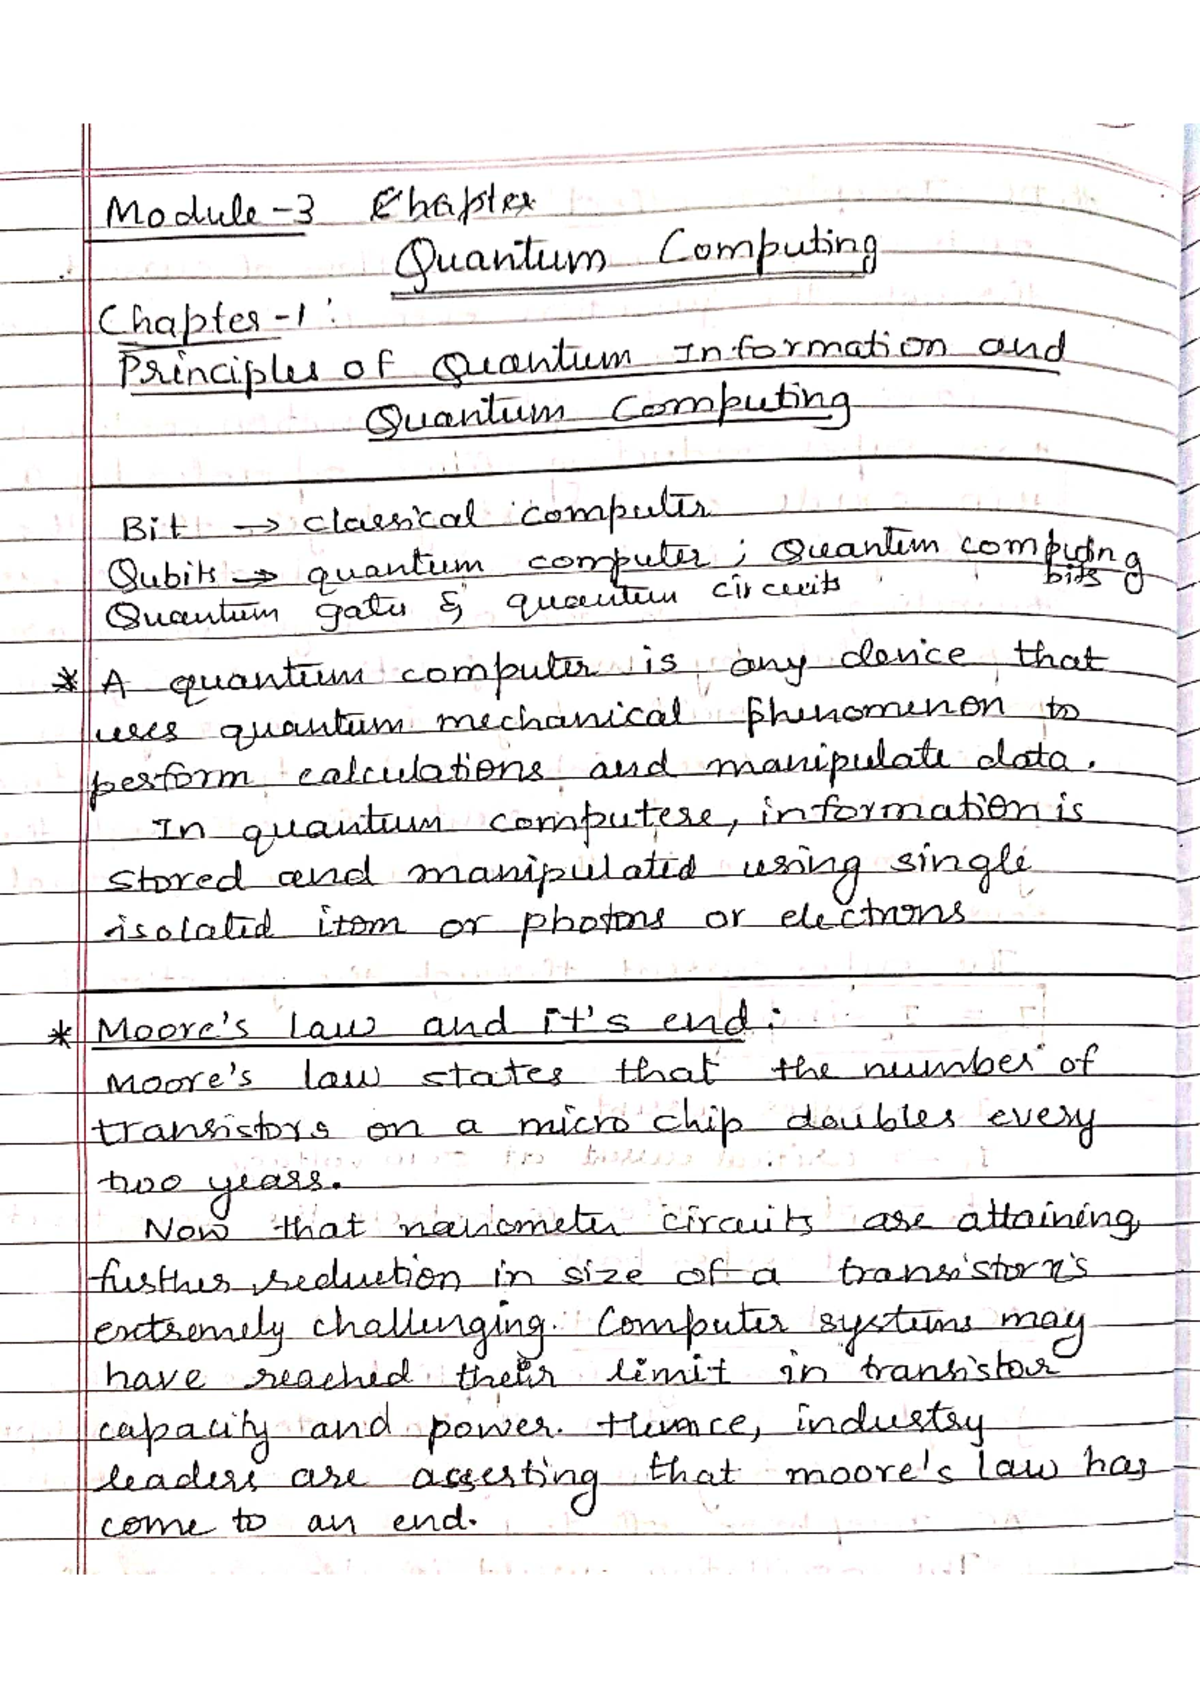 Module-3 Chapter
Quantum Computing
Chapter-1:
Principles of Quantum Information and
Quantum Computing
Bit → classical computer
Qubits → quantum computer ; Quantum computing
bits
Quantum gates & quantum circuits
* A quantum computer is any device that
uses quantum mechanical phenomenon to
perform calculations and manipulate data.
In quantum computers, information is
stored and manipulated using single
isolated itom or photons or electrons
* Moore's law and it's end:
Moore's law states that the number of
transistors on a micro chip doubles every
two years.
Now that nanometer circuits are attaining
further reduction in size of a transistor is
extremely challenging. Computer systems may
have reached their limit in transistor
capacity and power. Hence, industry
leaders are asserting that moore's law has
come to an end.